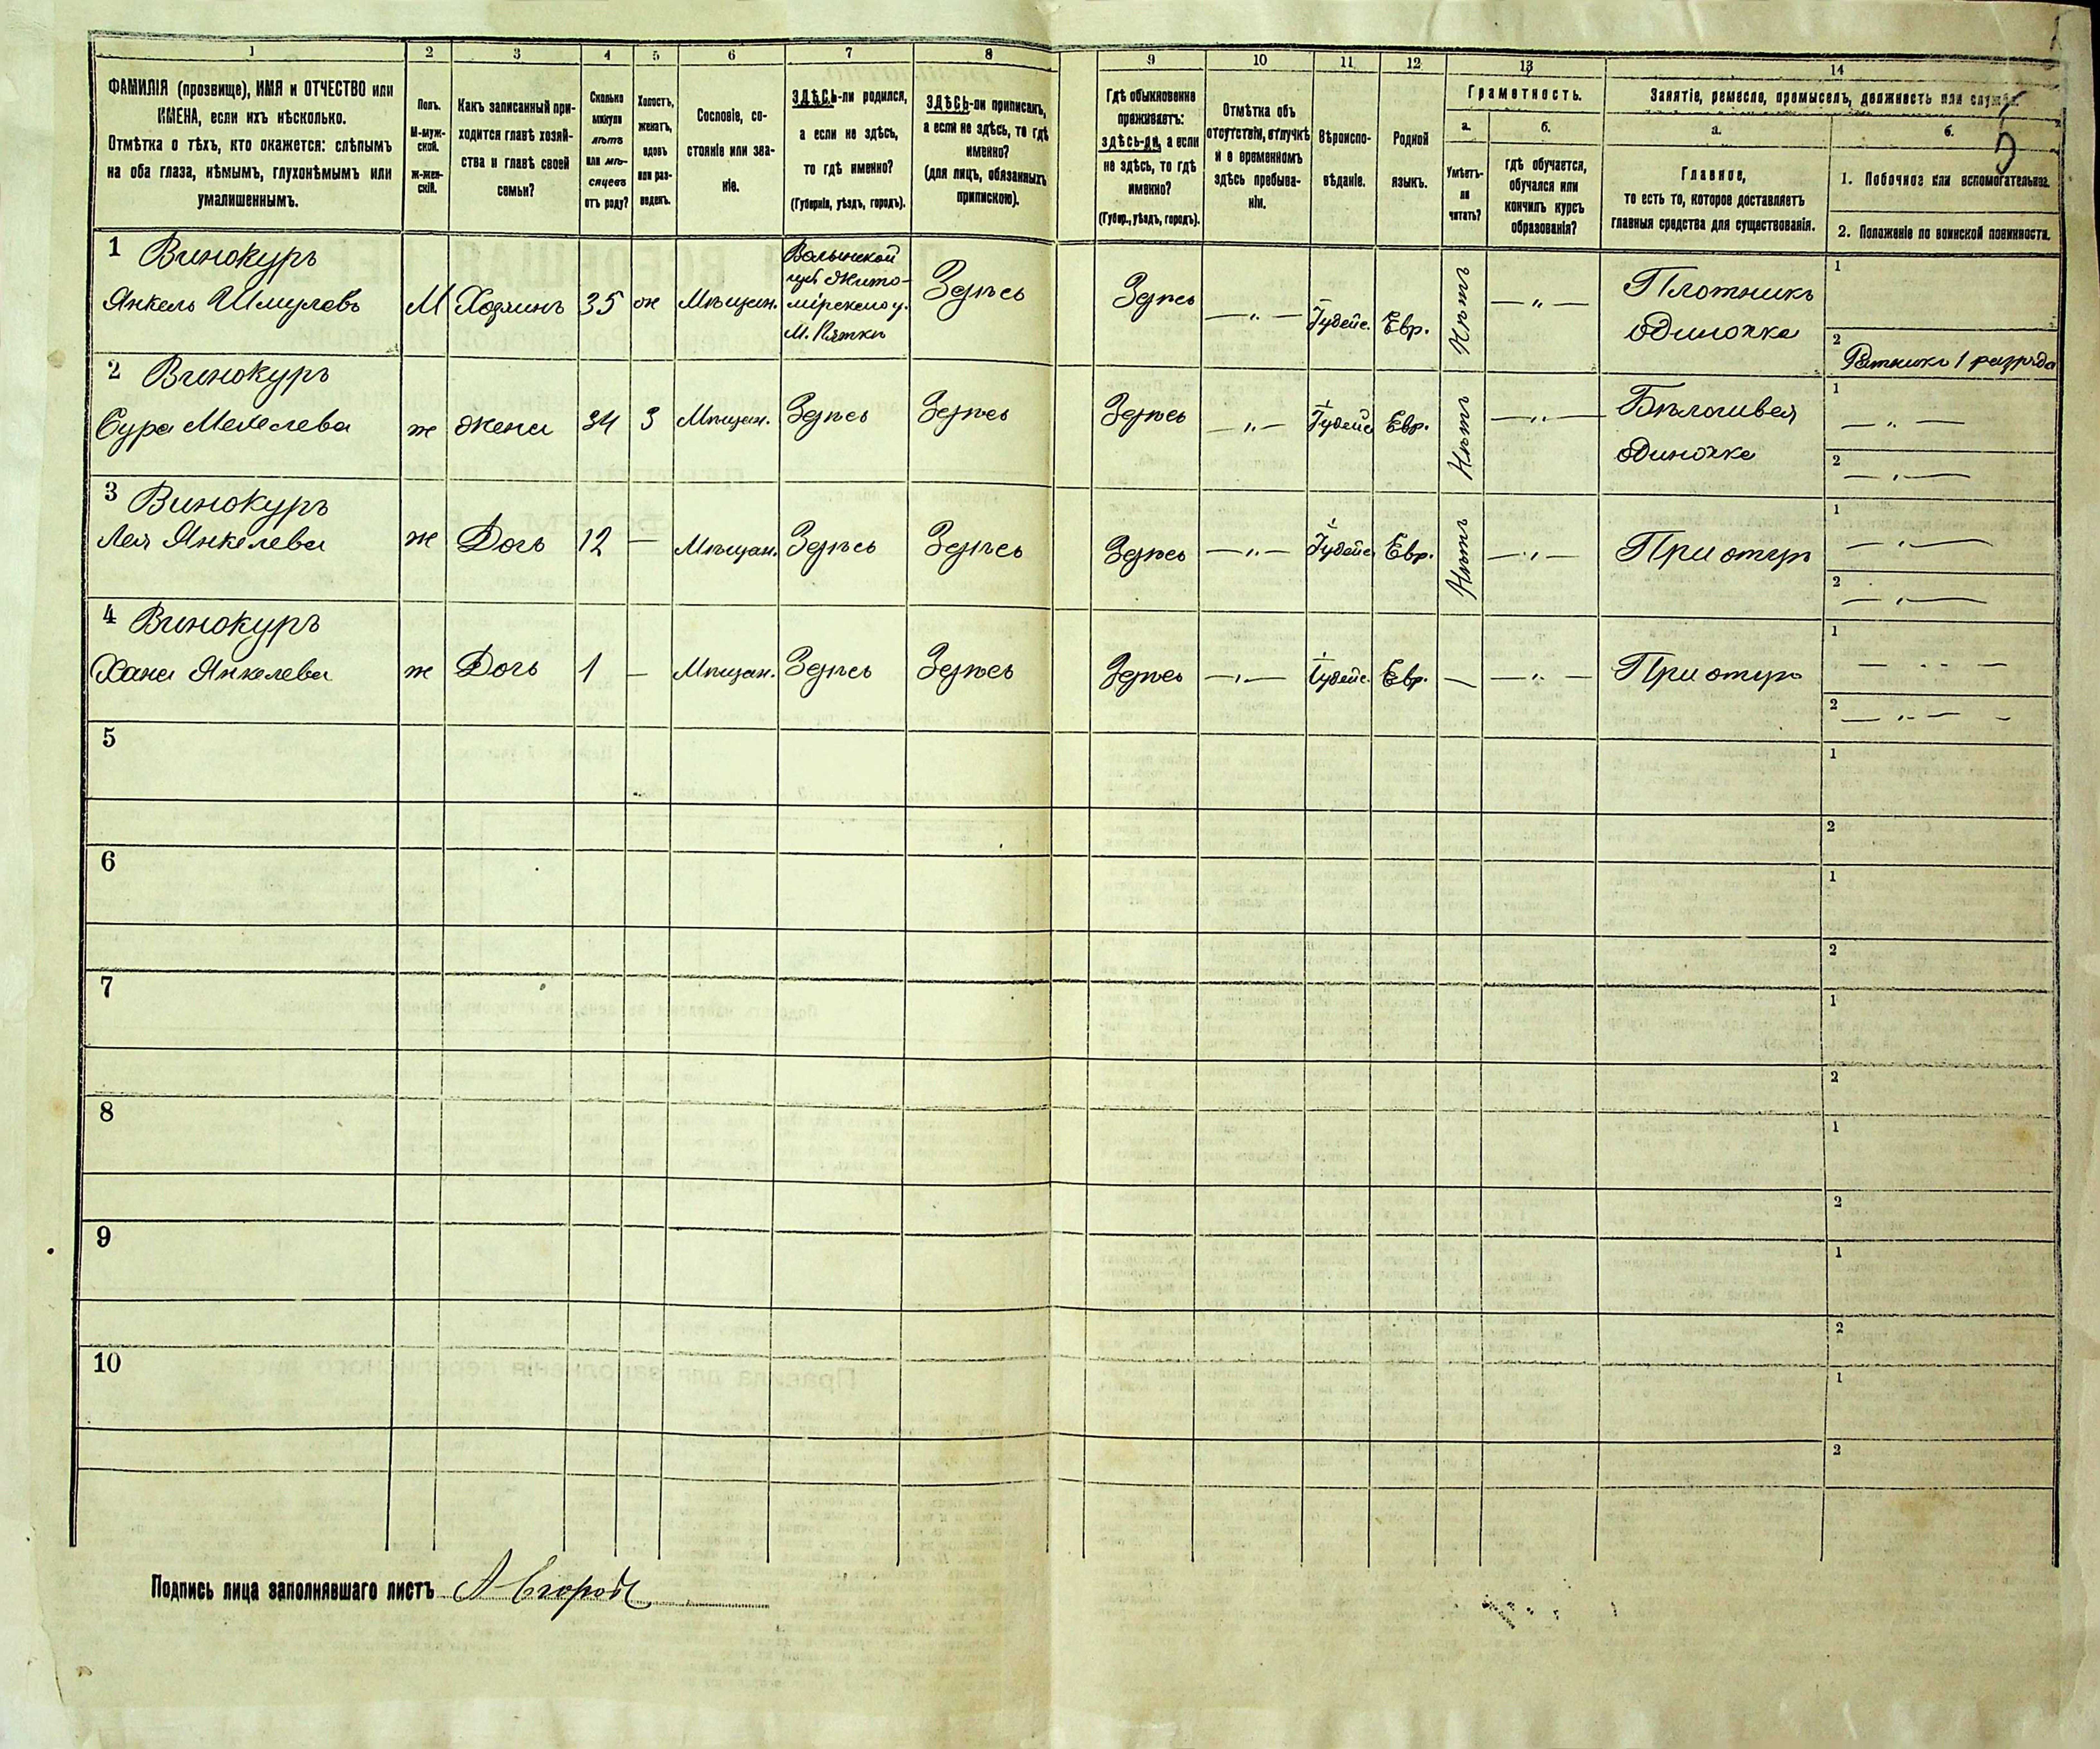 1 2 3 4 5 6 7 8 9 10 11 12 13 14
ФАМИЛІЯ (прозвище), ИМЯ и ОТЧЕСТВО или
ИМЕНА, если ихъ нѣсколько.
Отмѣтка о тѣхъ, кто окажется: слѣпымъ
на оба глаза, нѣмымъ, глухонѣмымъ или
умалишеннымъ.
Полъ.
М-муж-
ской.
ж-жен-
скій.
Какъ записанный при-
ходится главѣ хозяй-
ства и главѣ своей
семьи?
Сколько
минуло
лѣтъ
или мѣ-
сяцевъ
отъ роду?
Холостъ,
женатъ,
вдовъ
или раз-
веденъ.
Сословіе, со-
стояніе или зва-
ніе.
ЗДѢСЬ-ли родился,
а если не здѣсь,
то гдѣ именно?
(Губернія, уѣздъ, городъ).
ЗДѢСЬ-ли приписанъ,
а если не здѣсь, то гдѣ
именно?
(для лицъ, обязанныхъ
припискою).
Гдѣ обыкновенно
проживаетъ:
здѣсь-ли, а если
не здѣсь, то гдѣ
именно?
(Губер., уѣздъ, городъ).
Отмѣтка объ
отсутствіи, отлучкѣ
и о временномъ
здѣсь пребыва-
ніи.
Вѣроиспо-
вѣданіе.
Родной
языкъ.
Грамотность.
а.
Умѣетъ-
ли
читать?
б.
гдѣ обучается,
обучался или
кончилъ курсъ
образованія?
Занятіе, ремесло, промыселъ, должность или служба.
а.
Главное,
то есть то, которое доставляетъ
главныя средства для существованія.
б.
5
1. Побочное или вспомогательное.
2. Положеніе по воинской повинности.
1 Винокуръ
Янкель Шмулевъ М Хозяинъ 35 ж Мѣщан.
Волынской
губ. Жито-
мірскаго у.
М. Пятки
Здѣсь Здѣсь — „ — Іудейс. Евр. Нѣтъ — „ —
Плотникъ
одиночка
1
2
Ратникъ 1 разряда
2 Винокуръ
Сура ж Жена 34 З Мѣщан. Здѣсь Здѣсь Здѣсь — „ — Іудейс Евр. Нѣтъ — „ —
Бѣлошвея
одиночка
1 — „ —
2 — „ —
3 Винокуръ
Лея Янкелева ж Дочь 12 — Мѣщан. Здѣсь Здѣсь Здѣсь — „ — Іудейс Евр. Нѣтъ — „ — При отцѣ
1 — „ —
2 — „ —
4 Винокуръ
Хана Янкелева ж Дочь 1 — Мѣщан. Здѣсь Здѣсь Здѣсь — „ — Іудейс. Евр. — — „ — При отцѣ
1 — „ —
2 — „ —
5 1
2
6 1
2
7 1
2
8 1
2
9 1
2
10 1
2
Подпись лица заполнявшаго листъ